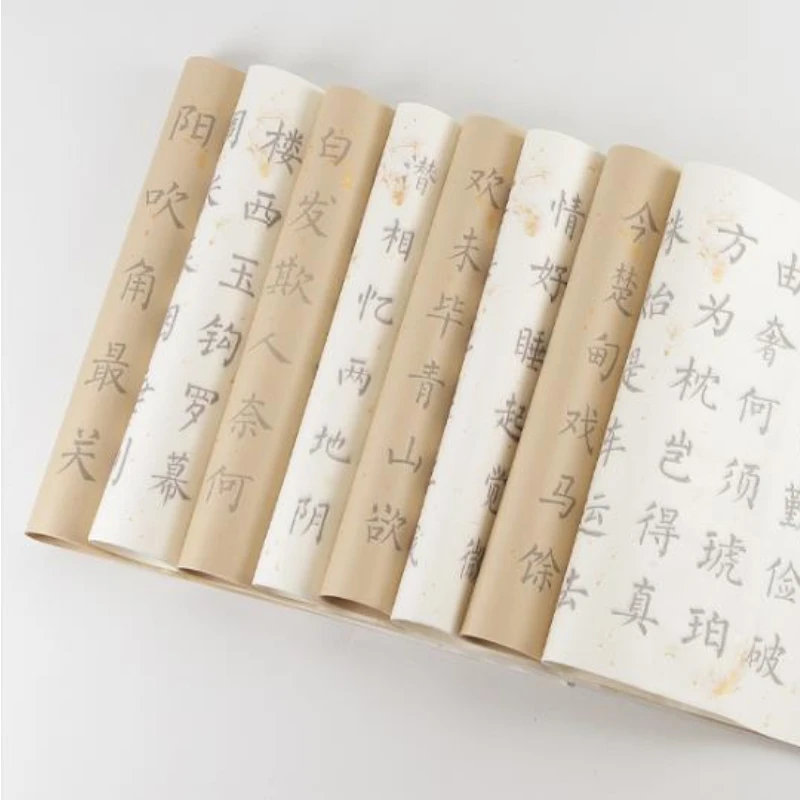 勤俭破
由奢何须琥珀
方为枕岂得真
始是车运去
今楚甸戏马馀
情好睡起觉微
欢未毕青山欲
潜相忆两地阴
白发欺人奈何
楼西玉钩罗幕
阳吹角最关